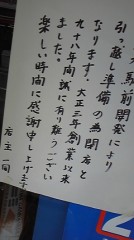 馬前開発により
引っ越し準備の為閉店と
なります。大正三年創業以来
九十八年間誠に有り難うござい
ました。
楽しい時間に感謝申し上げます
店主一同